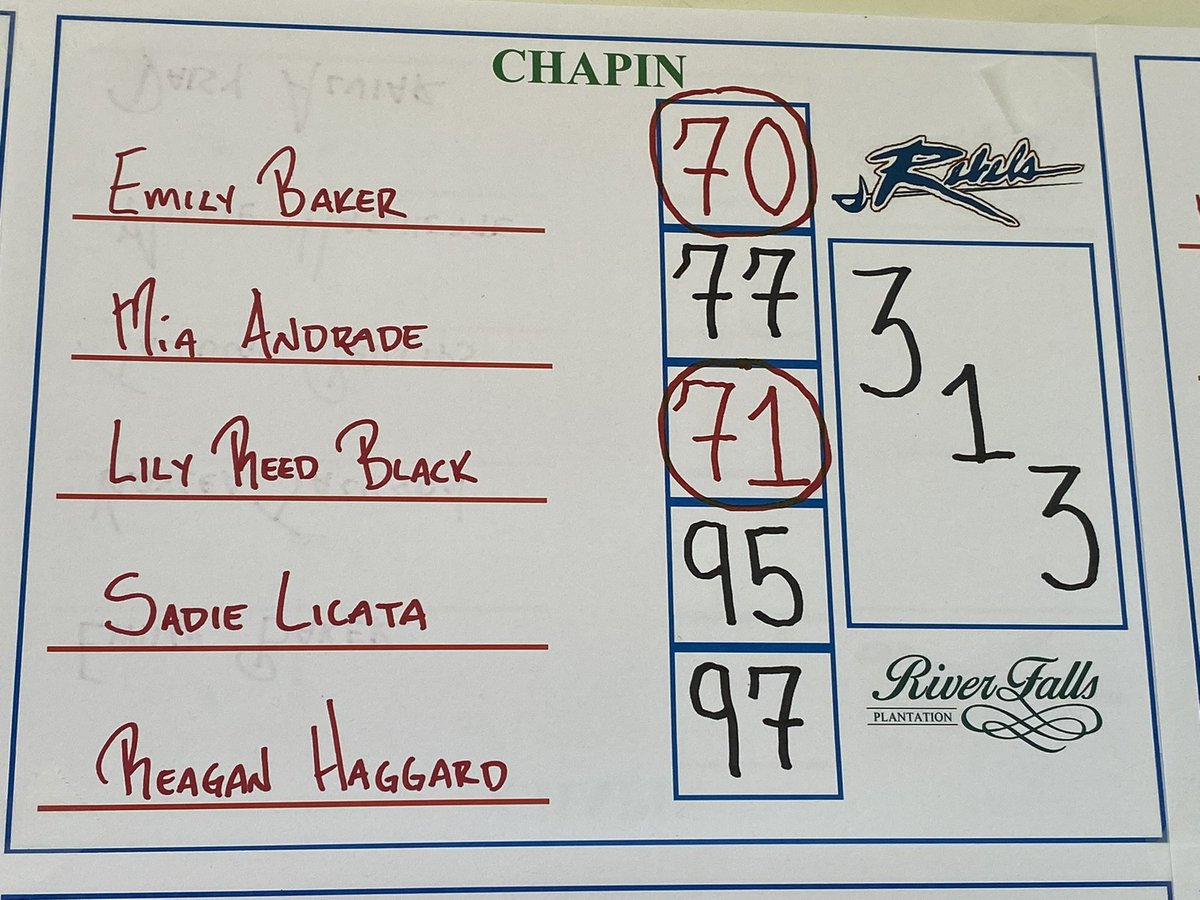 CHAPIN
EMILY BAKER 70
Rebels
MiA ANDRADE 77
LILY REED BLACK 71
SADIE LICATA 95
REAGAN HAGGARD 97
3
1
3
River Falls
PLANTATION